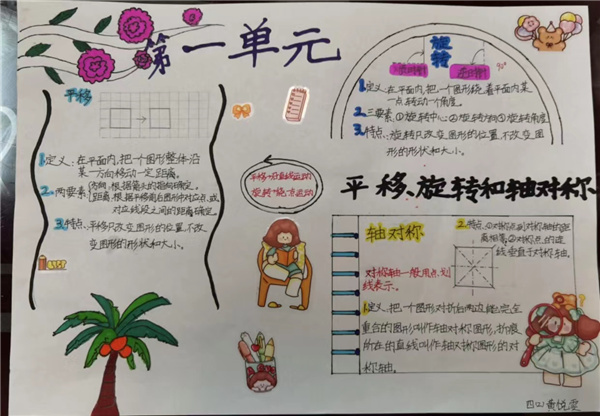 第一单元
平移
1.定义:在平面内,把一个图形整体沿
某一方向移动一定距离。
2.两要素:方向:根据箭头的指向确定。
距离:根据平移前后图形中对应点或
对应线段之间的距离确定。
3.特点:平移只改变图形的位置,不改
变图形的形状和大小。
旋转
90°
1.定义:在平面内,把一个图形绕着平面内某
一点转动一个角度。
2.三要素:①旋转中心②旋转方向③旋转角度
3.特点:旋转只改变图形的位置,不改变图
形的形状和大小。
平移、旋转和轴对称
轴对称
对称轴一般用点划
线表示。
1.定义:把一个图形对折后两边能完全
重合的图形叫作轴对称图形,折痕
所在的直线叫作轴对称图形的对
称轴。
2.特点:①对称点到对称轴的距
离相等,②对称点的连
线垂直于对称轴。